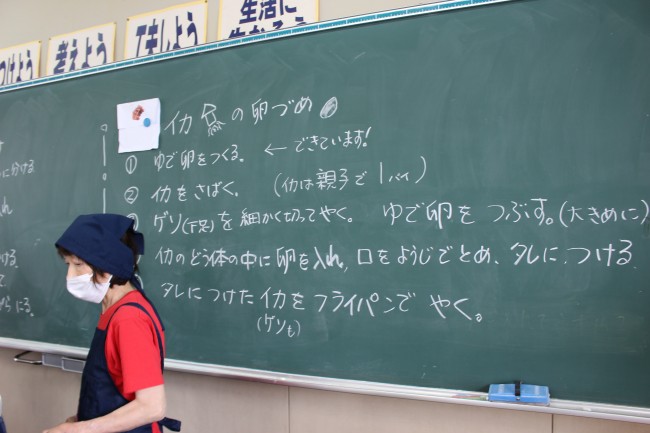 つけよう
考えよう
てましょう
生活に
イカの卵づめ
① ゆで卵をつくる。 ← できています!
② イカをさばく。 (イカは親子で1パイ)
ゲソ(下足)を細かく切ってやく。 ゆで卵をつぶす。(大きめに)
イカのどう体の中に卵を入れ、口をようじでとめ、タレにつける
タレにつけたイカをフライパンでやく。
(ゲソも)
に分ける